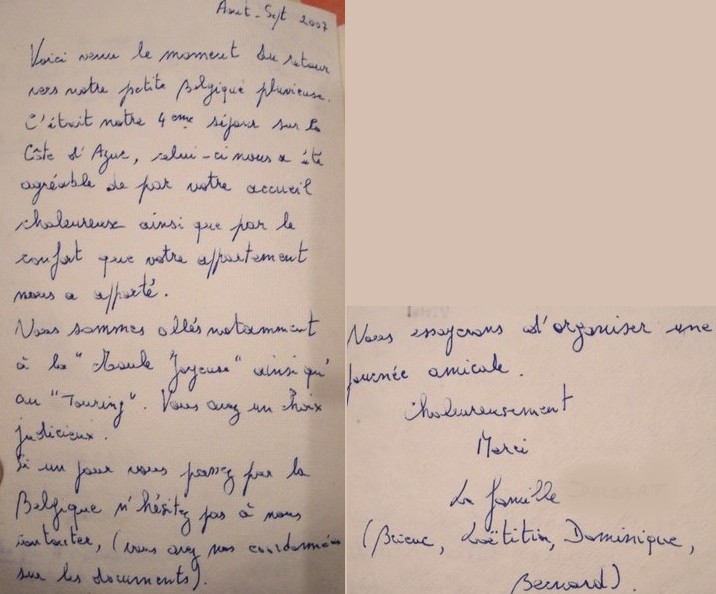 Aout - Sept 2007
Voici venu le moment du retour
vers notre petite Belgique pluvieuse.
C'était notre 4ème séjour sur la
Côte d'Azur, celui-ci nous a été
agréable de par votre accueil
chaleureux ainsi que par le
confort que votre appartement
nous a apporté.
Nous sommes allés notamment
à la "Moule Joyeuse" ainsi qu'
au "Touring". Vous avez un choix
judicieux.
Si un jour vous passez par la
Belgique n'hésitez pas à nous
contacter, (vous avez nos coordonnées
sur les documents).
Nous essayerons d'organiser une
journée amicale.
Chaleureusement
Merci
La famille
(Brieuc, Laëtitia, Dominique,
Bernard).